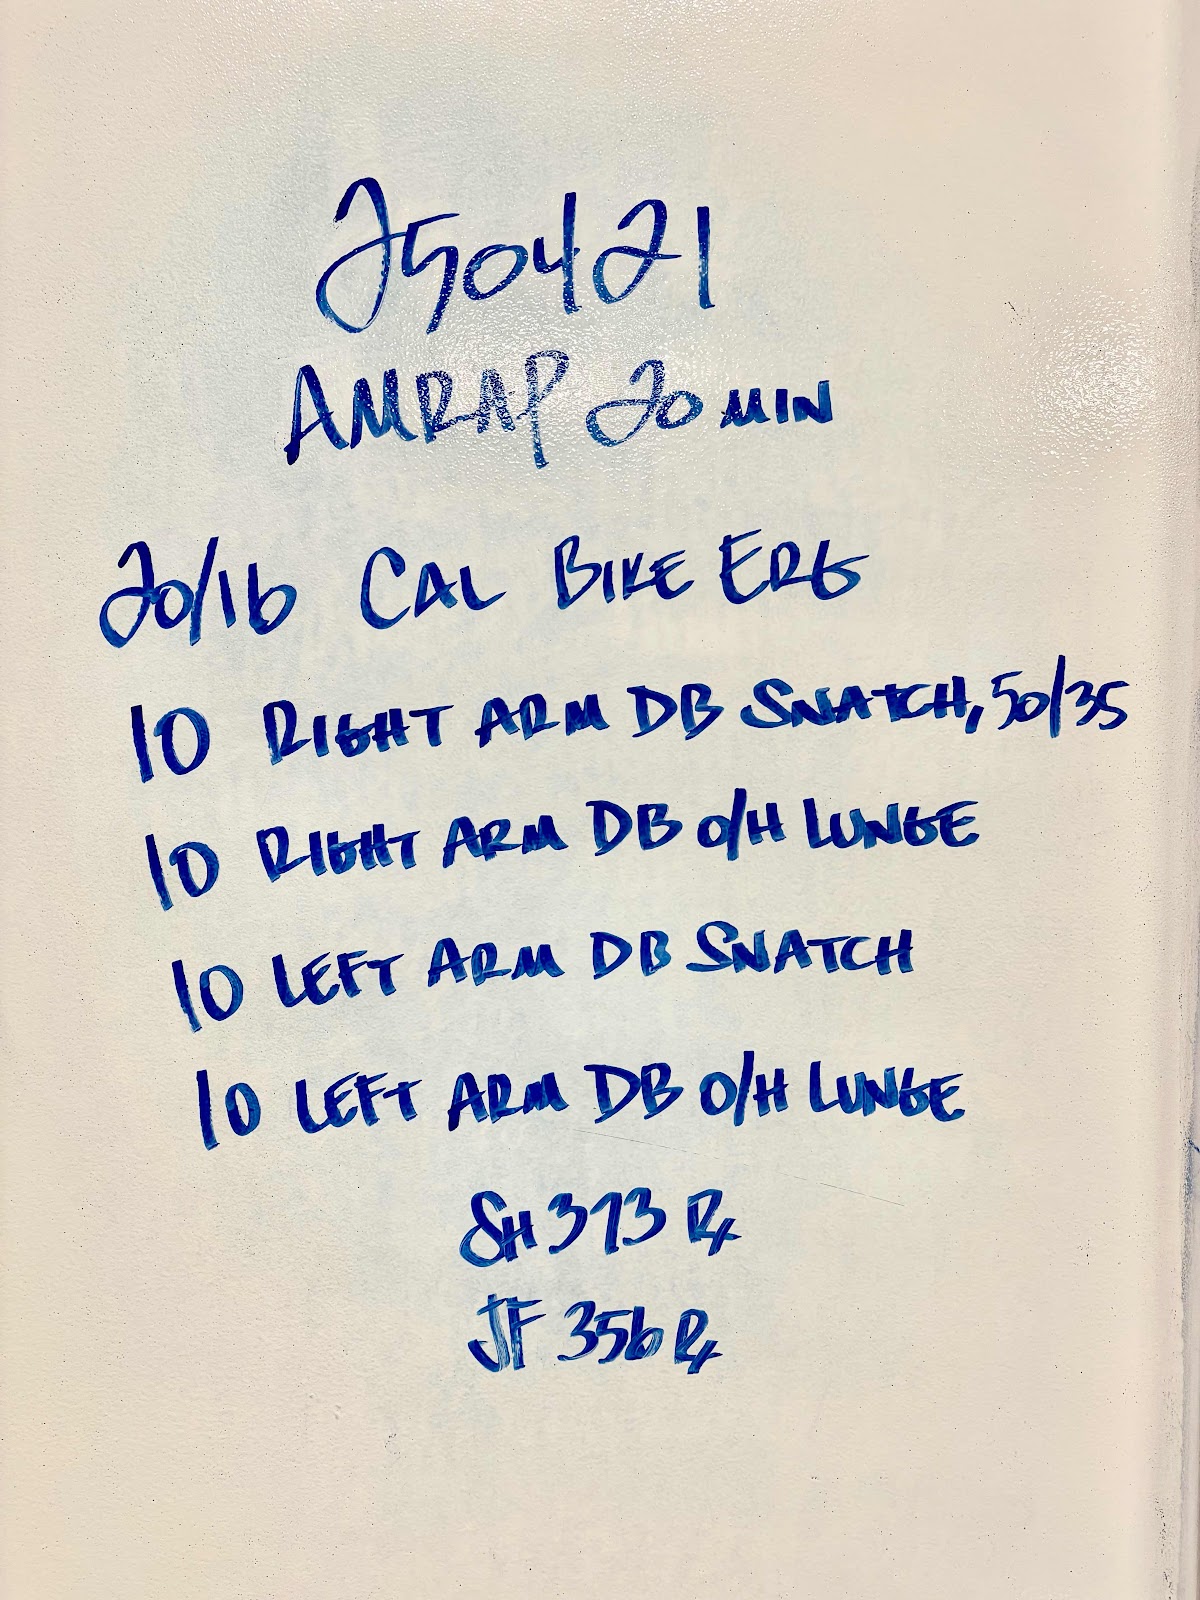 250421
AMRAP 20 MIN
20/16 CAL BIKE ERG
10 RIGHT ARM DB SNATCH, 50/35
10 RIGHT ARM DB O/H LUNGE
10 LEFT ARM DB SNATCH
10 LEFT ARM DB O/H LUNGE
SH 373 Rx
JF 356 Rx